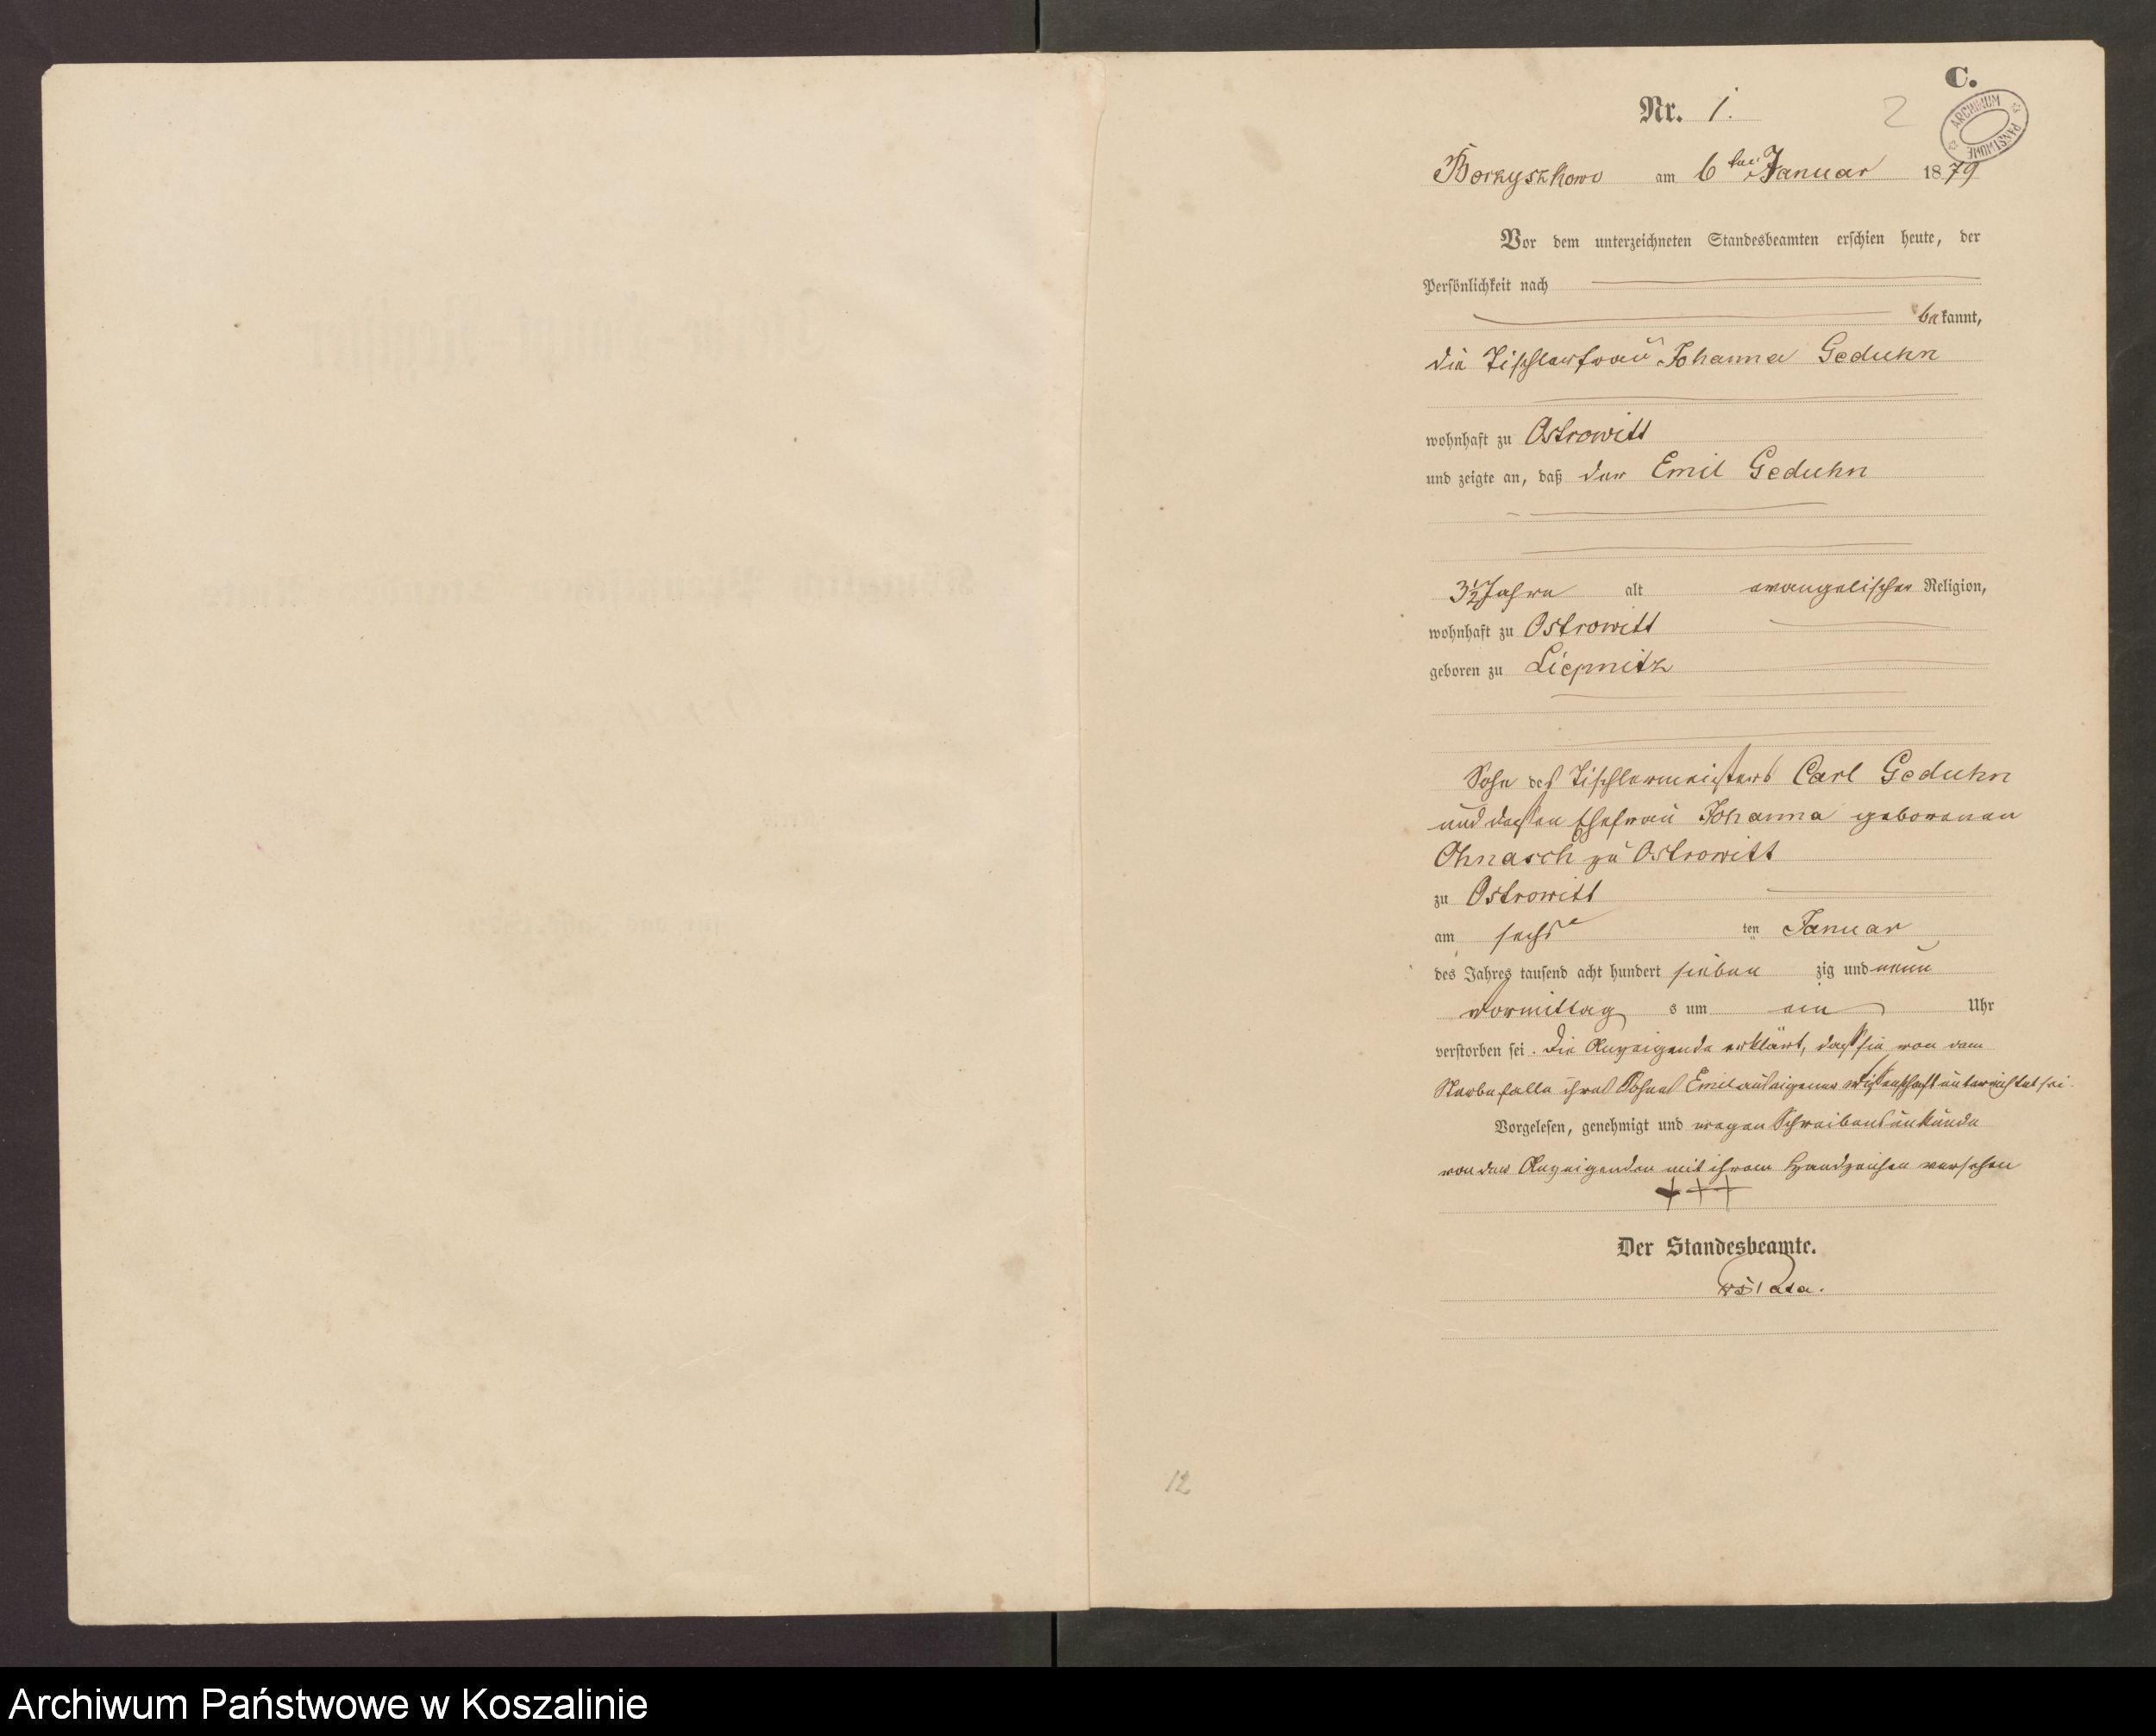 C.
Nr. 1.
2
ARCHIWUM PAŃSTWOWE
Borzyszkowo am 6ten Januar 1879
Vor dem unterzeichneten Standesbeamten erschien heute, der
Persönlichkeit nach
bekannt,
die Tischlerfrau Johanna Geduhn
wohnhaft zu Ostrowitt
und zeigte an, daß der Emil Geduhn
3½ Jahre alt evangelischer Religion,
wohnhaft zu Ostrowitt
geboren zu Liepnitz
Sohn des Tischlermeisters Carl Geduhn
und dessen Ehefrau Johanna geborenen
Ohnasch zu Ostrowitt
zu Ostrowitt
am sechs ten Januar
des Jahres tausend acht hundert sieben zig und neun
vormittag s um ein Uhr
verstorben sei. Die Anzeigende erklärt, dass sie von dem
Sterbefalle ihres Sohnes Emil aus eigener Wissenschaft unterrichtet sei.
Vorgelesen, genehmigt und wegen Schreibensunkunde
von der Anzeigenden mit ihrem Handzeichen versehen
+++
Der Standesbeamte.
12
Archiwum Państwowe w Koszalinie